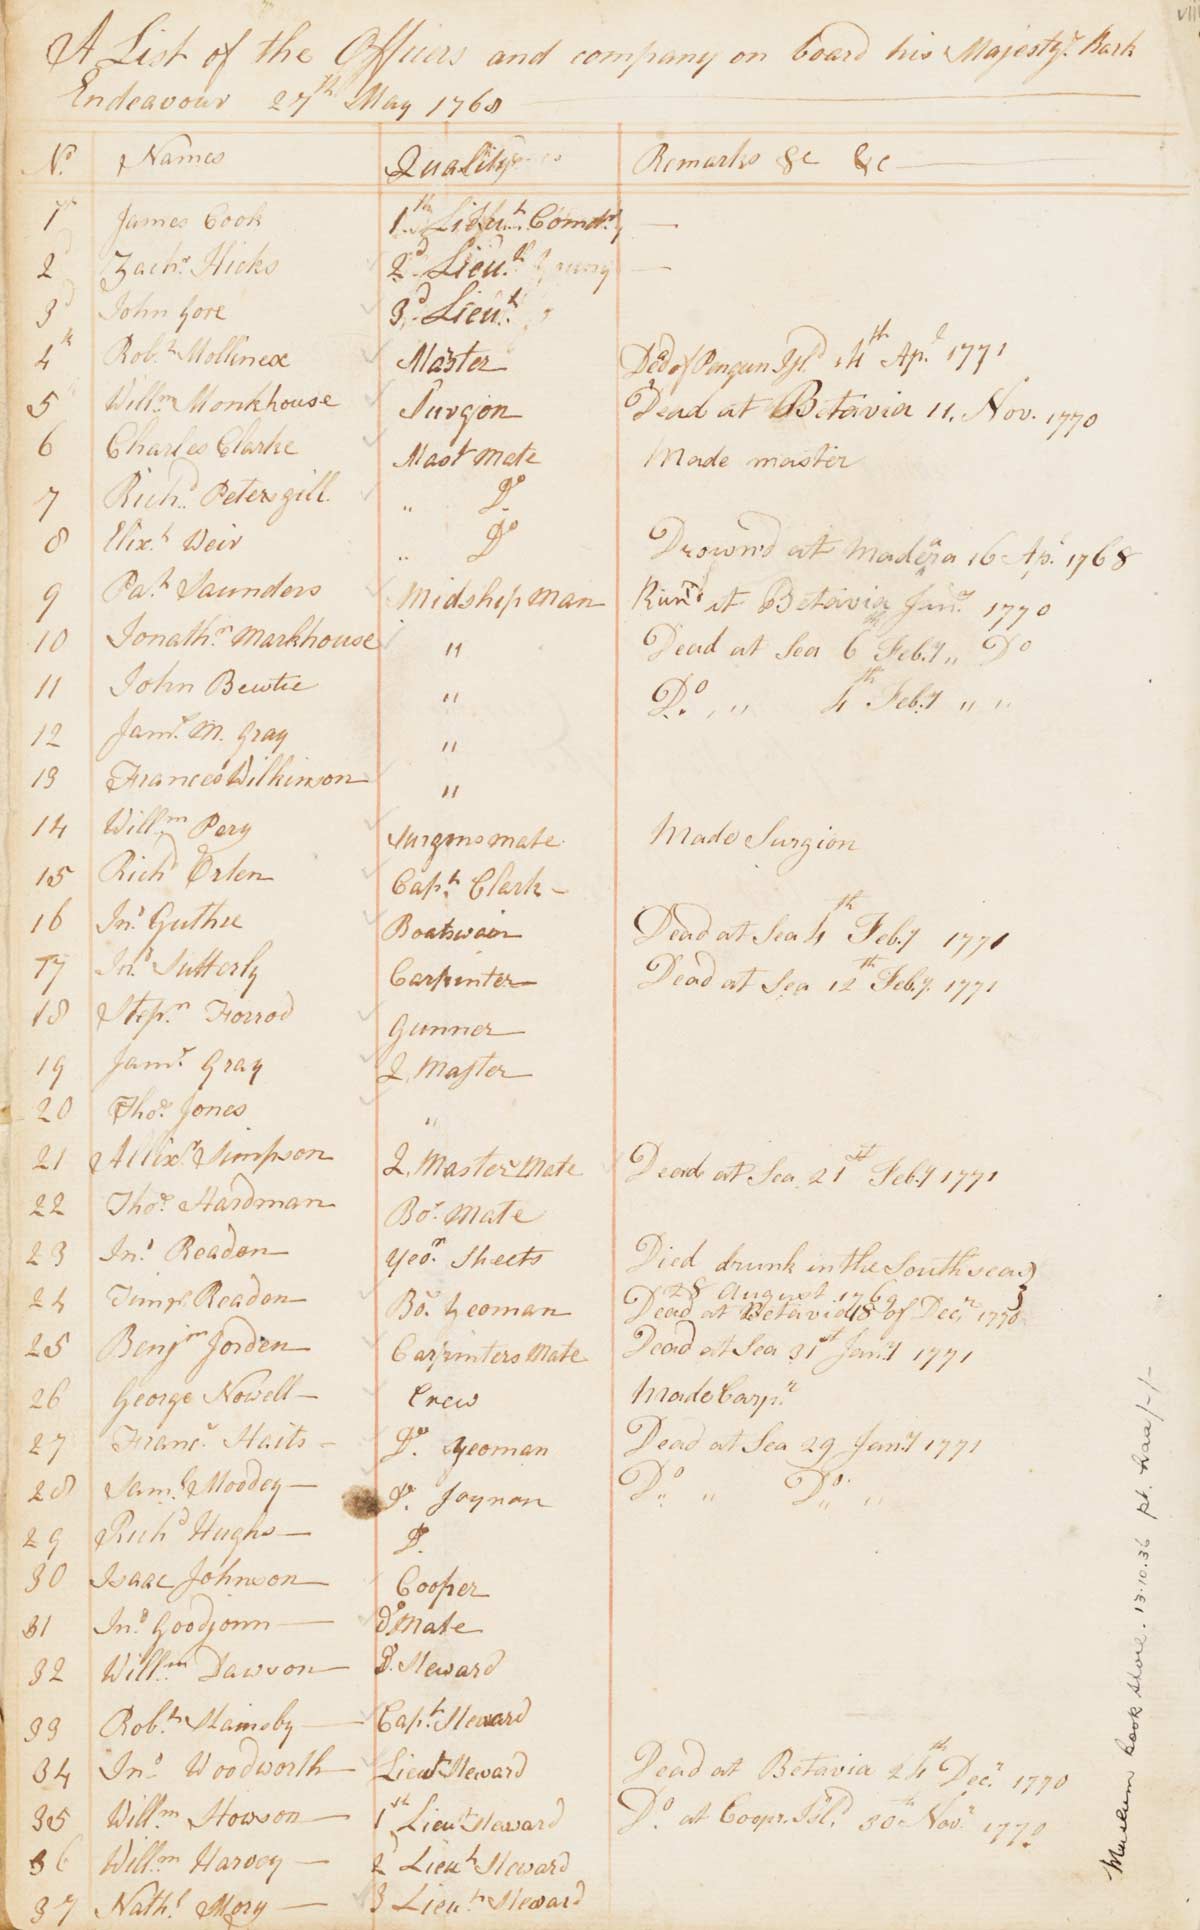 A List of the Officers and company on board his Majestys Bark
Endeavour 27th May 1768
No. Names Quality Remarks &c &c
1 James Cook 1st Lieut. Comdr
2d Zachr. Hicks 2d. Lieut. Young
3d John Gore 3d. Lieut.
4th Robt. Mollinex Master Ded of Pengun Isld 14th Apl 1771
5 Willm. Monkhouse Surgon Dead at Betavia 11. Nov. 1770
6 Charles Clarke Mast Mate Made master
7 Richd. Petersgill " Do
8 Elixt. Weir " Do Drownd at Madera 16 Ap. 1768
9 Pat. Saunders Midshipman Run'd at Betavia Jany. 1770
10 Jonathn. Markhouse " Dead at Sea 6th Feby " Do
11 John Bewtie " Do " " 4th Feby " "
12 Jams. M. Gray "
13 Frances Wilkinson "
14 Willm. Pery Surgons mate Made Surgion
15 Richd Orten Capt. Clark
16 Jno. Guthre Boatswain Dead at Sea 4th Feby 1771
17 Jno. Sutterly Carpinter Dead at Sea 12th Feby. 1771
18 Stepn. Forrod Gunner
19 Jams. Gray Q. Master
20 Thos. Jones "
21 Allixr. Simpson Q. Master Mate Dead at Sea 21st Feby 1771
22 Thos. Hardman Bos. Mate
23 Jno. Readen Yeor. Sheets Died drunk in the South seas
28 August 1769
24 Timy. Readon Bos. Yeoman Dead at Betavia 18 of Decr. 1770
25 Benjm. Jorden Carpinters Mate Dead at Sea 31st Jany 1771
26 George Nowell Crew Made Carpr.
27 Francs. Haits Do. Yeoman Dead at Sea 29 Jany 1771
28 Saml. Moodey Do. Joynon Do " Do "
29 Richd Hughs Do.
30 Isaac Johnson Cooper
31 Jno. Goodjonn Do Mate
32 Willm. Dawson Do. Steward
33 Robt. Stainsby Capt. Steward
34 Jno. Woodworth Lieut Steward Dead at Betavia 24th Decr. 1770
35 Willm. Howson 1st Lieut Steward Do. at Coopr. Isld. 30th Novr. 1770
36 Willm Harvey 2d Lieut Steward
37 Nathl. Mory 3 Lieut Steward
Museum book store. 13.10.36